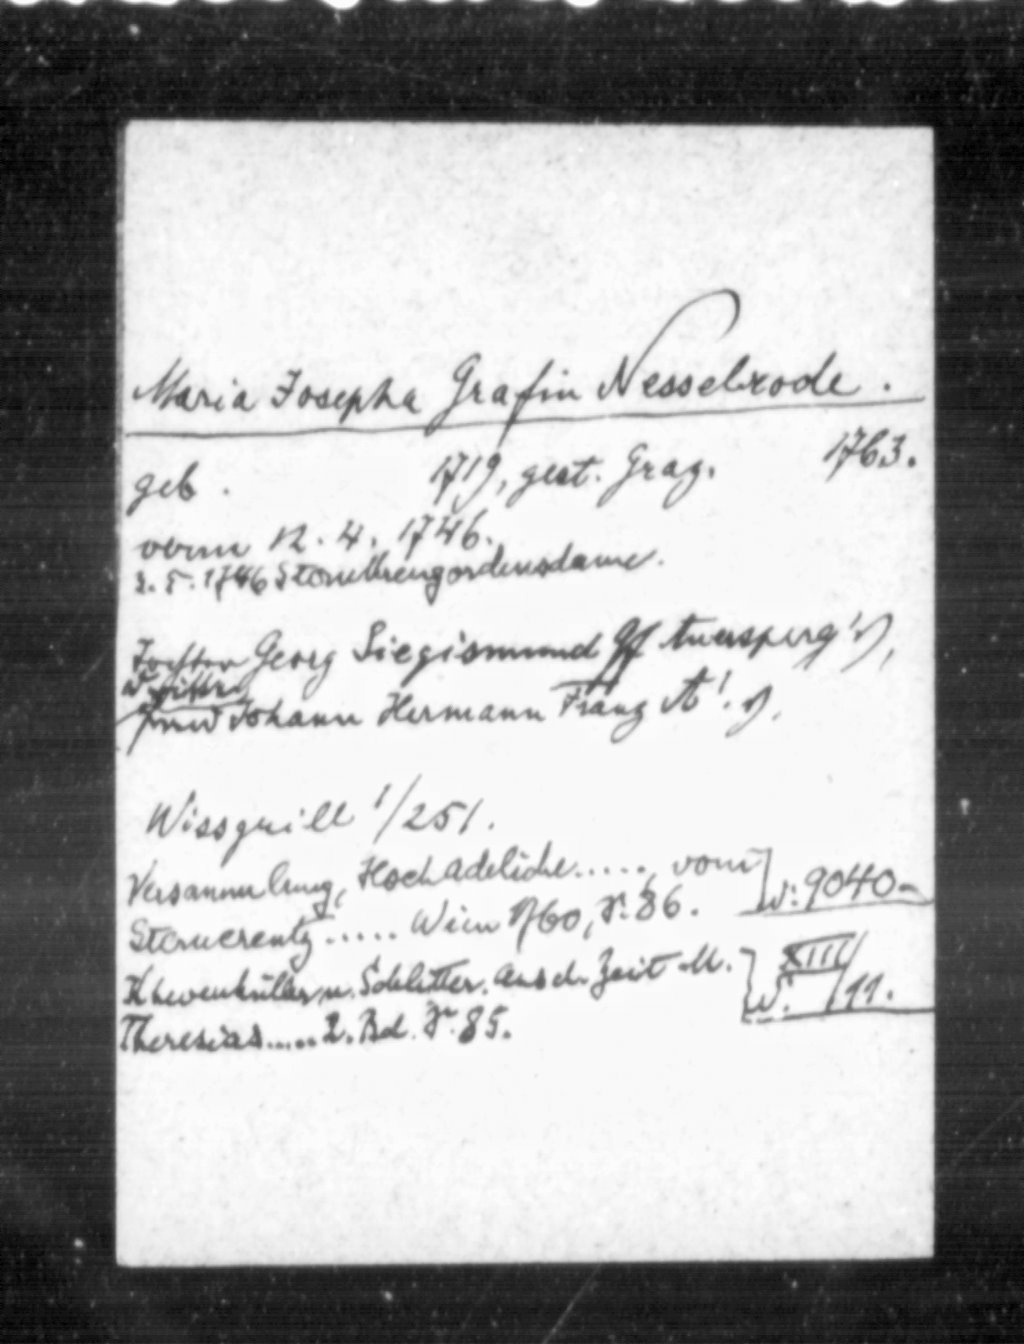 Maria Josepha Gräfin Nesselrode.
geb. 1719, gest. Graz. 1763.
verm 12. 4. 1746.
3. 5. 1746 Sternkreuzordensdame.
Tochter Georg Siegismund Gf Auersperg
Johann Hermann Franz A!
Wissgrill 1/251.
Versammlung, Hochadeliche....., vom
Sternkreutz..... Wien 1760, S. 86. W: 9040-
Khevenhüller u. Schlitter. Aus d. Zeit M. XIII/
Theresias..... 2. Bd. S. 85. W. /11.